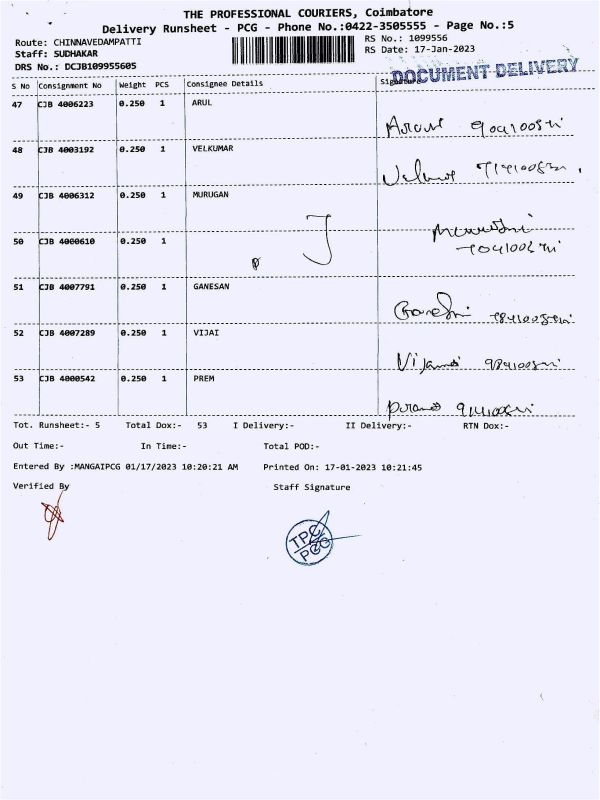 THE PROFESSIONAL COURIERS, Coimbatore
Delivery Runsheet - PCG - Phone No.:0422-3505555 - Page No.:5
Route: CHINNAVEDAMPATTI
RS No.: 1099556
Staff: SUDHAKAR
RS Date: 17-Jan-2023
DRS No.: DCJB109955605
DOCUMENT DELIVERY
S No Consignment No Weight PCS Consignee Details Signature
47 CJB 4006223 0.250 1 ARUL
48 CJB 4003192 0.250 1 VELKUMAR
49 CJB 4006312 0.250 1 MURUGAN
50 CJB 4000610 0.250 1
51 CJB 4007791 0.250 1 GANESAN
52 CJB 4007289 0.250 1 VIJAI
53 CJB 4000542 0.250 1 PREM
Tot. Runsheet:- 5 Total Dox:- 53 I Delivery:- II Delivery:- RTN Dox:-
Out Time:- In Time:- Total POD:-
Entered By :MANGAIPCG 01/17/2023 10:20:21 AM Printed On: 17-01-2023 10:21:45
Verified By Staff Signature
TPC
PCG